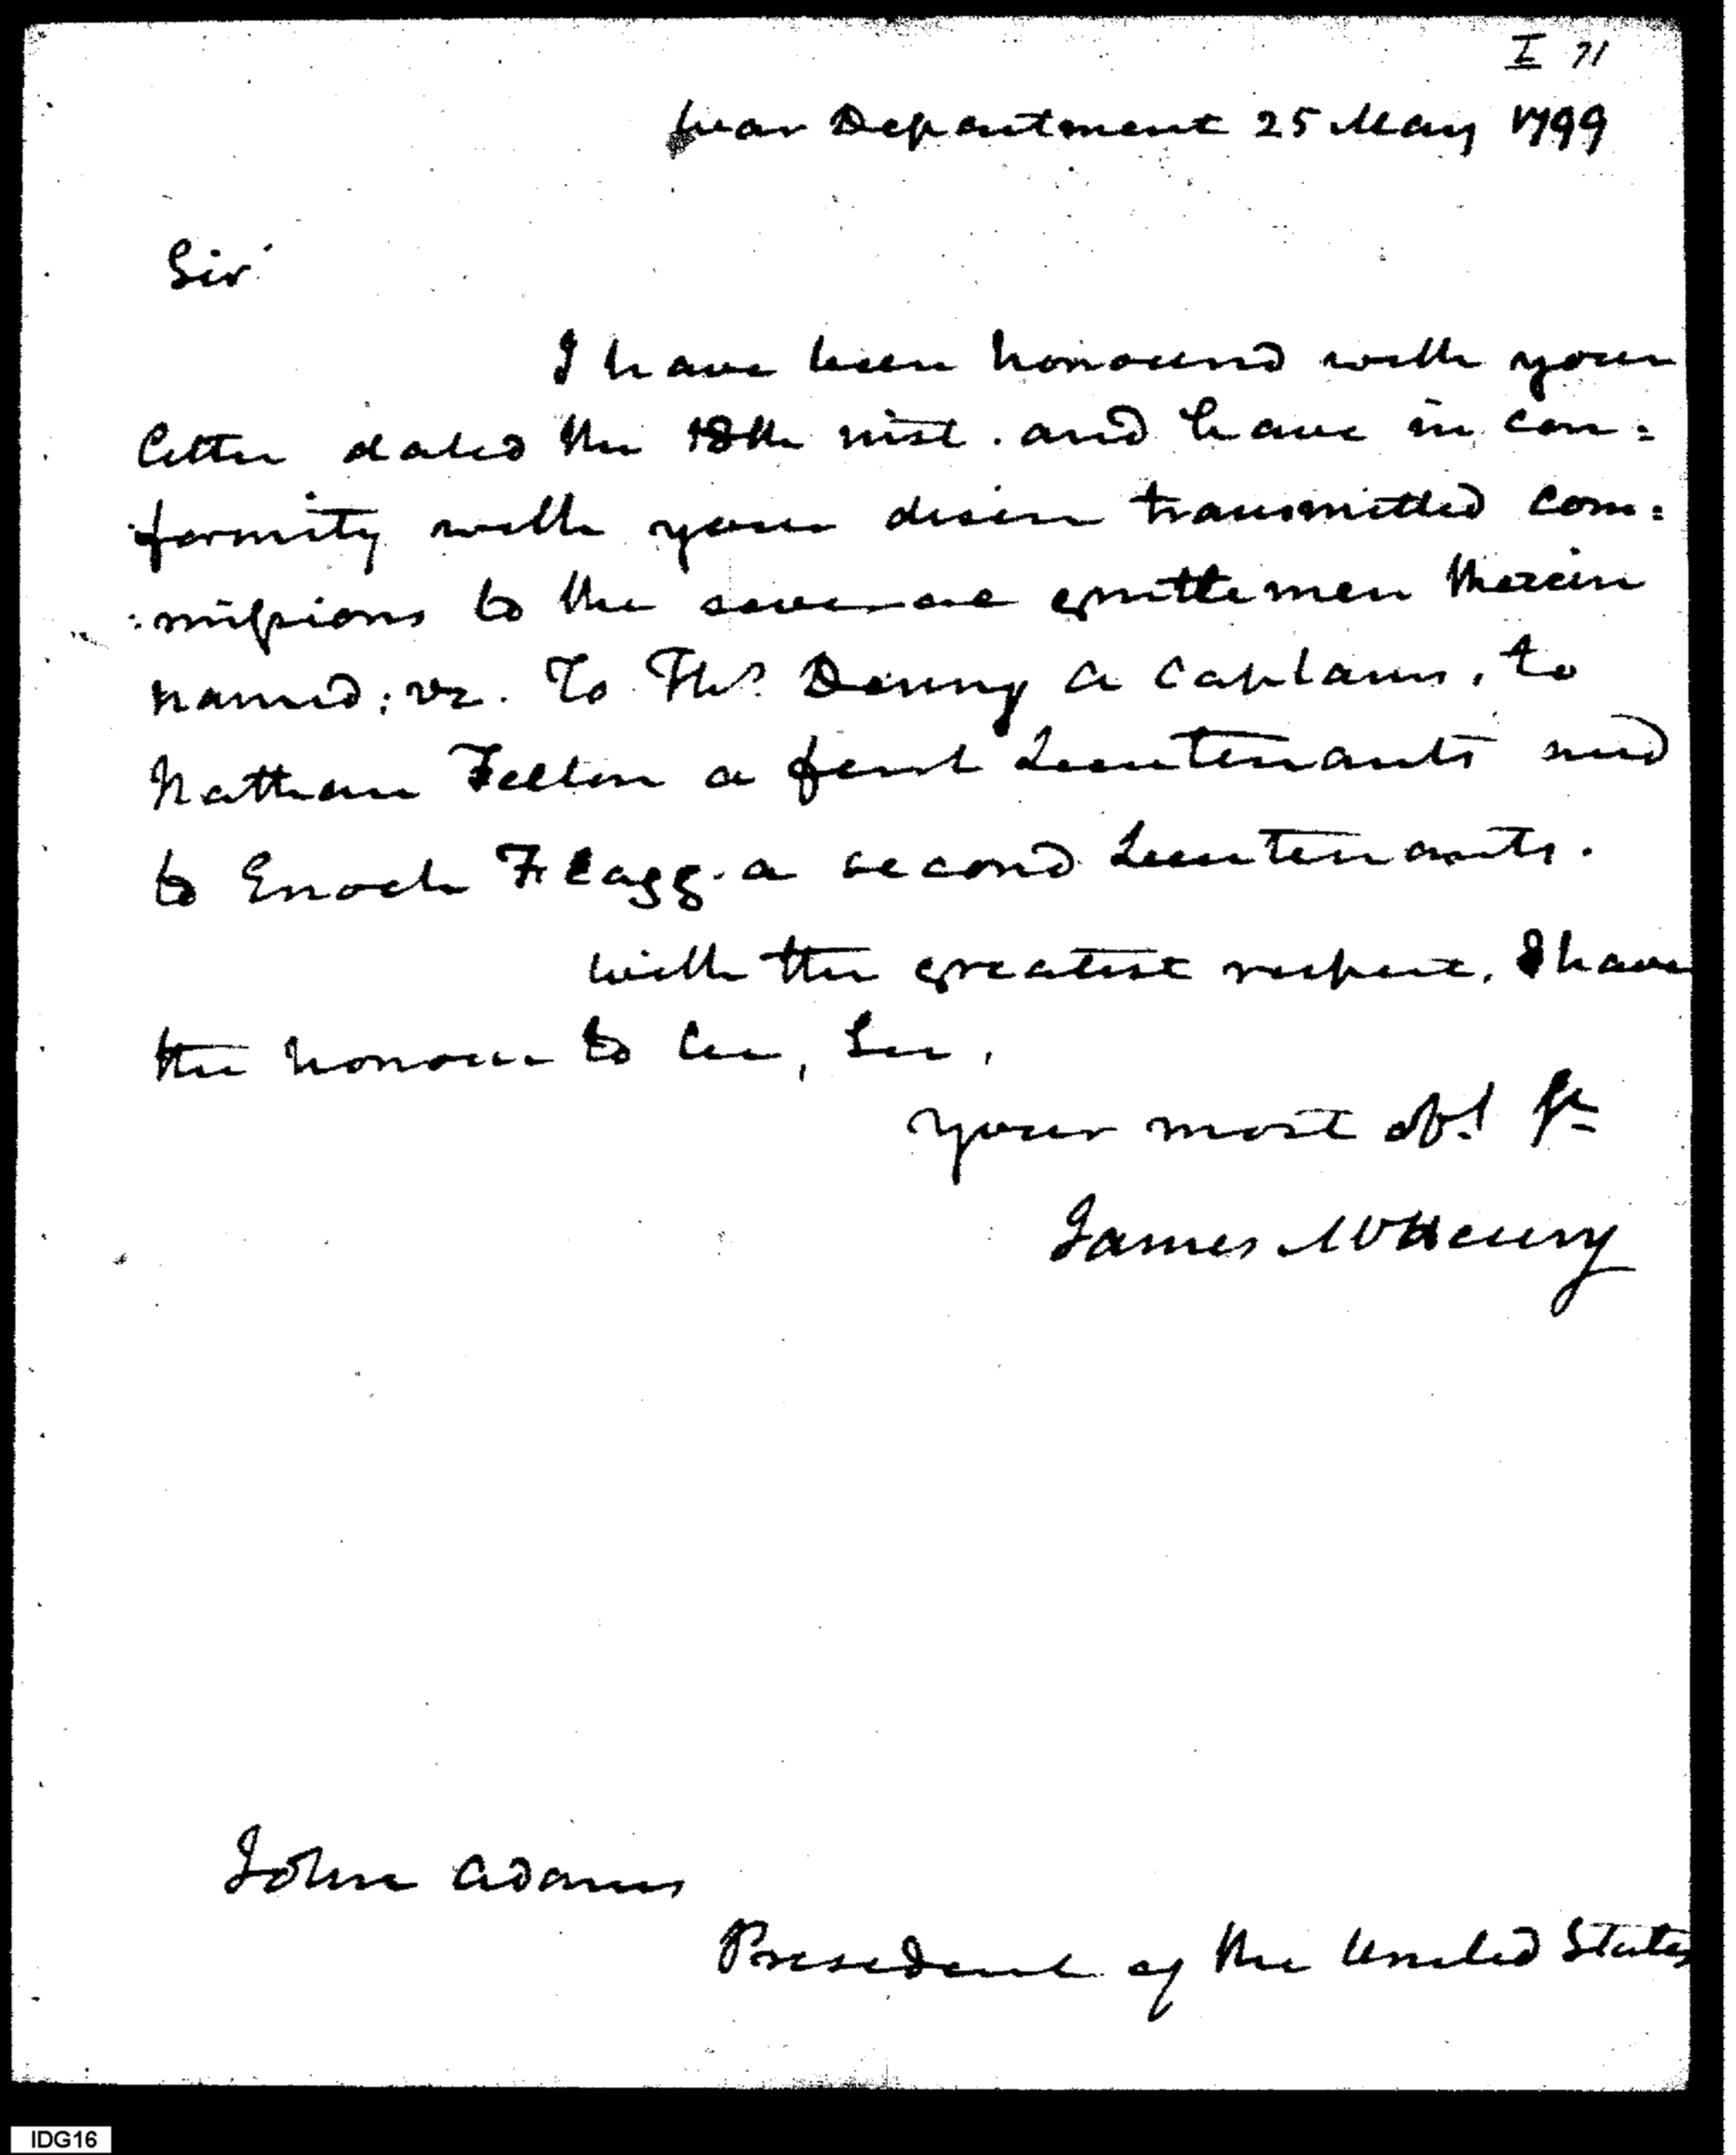 I 71
War Department 25 May 1799
Sir
I have been honoured with your
letter dated the 18th inst. and have in con=
formity with your desire transmitted com=
=missions to the several gentlemen therein
named; vz. To Ths. Denny a captains, to
Nathan Felton a first Lieutenants and
to Enoch Flagg a second Lieutenants.
With the greatest respect, I have
the honour to be, Sir,
your most obt. St
James McHenry
John Adams
President of the United States
IDG16